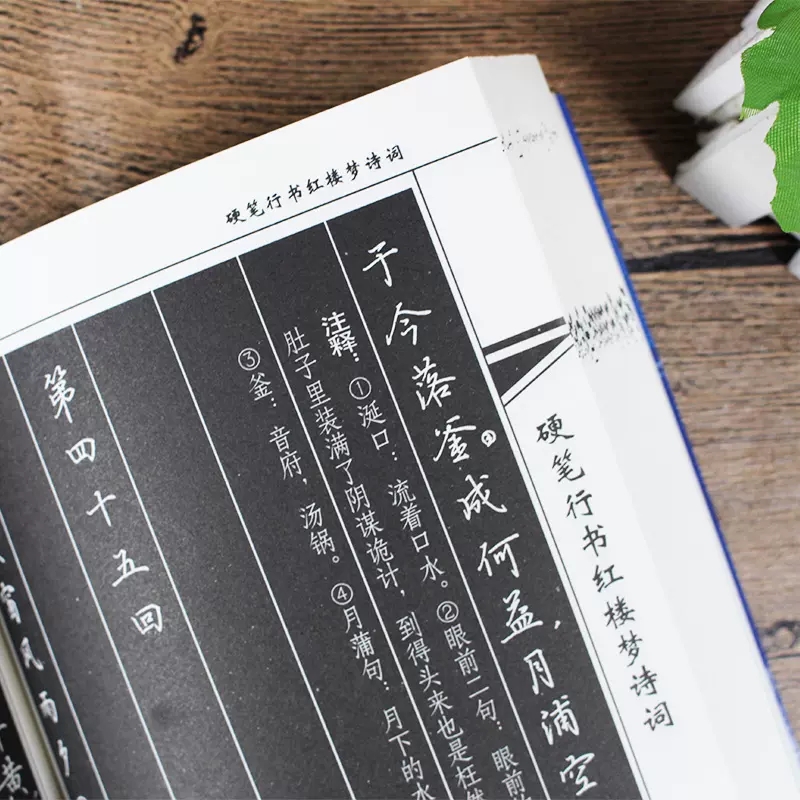 硬笔行书红楼梦诗词
硬笔行书红楼梦诗词
于今落釜③成何益，月浦空
注释：①涎口：流着口水。②眼前二句：眼前
肚子里装满了阴谋诡计，到得头来也是枉然
③釜：音府，汤锅。④月蒲句：月下的水
第四十五回
窗风雨夕
黄